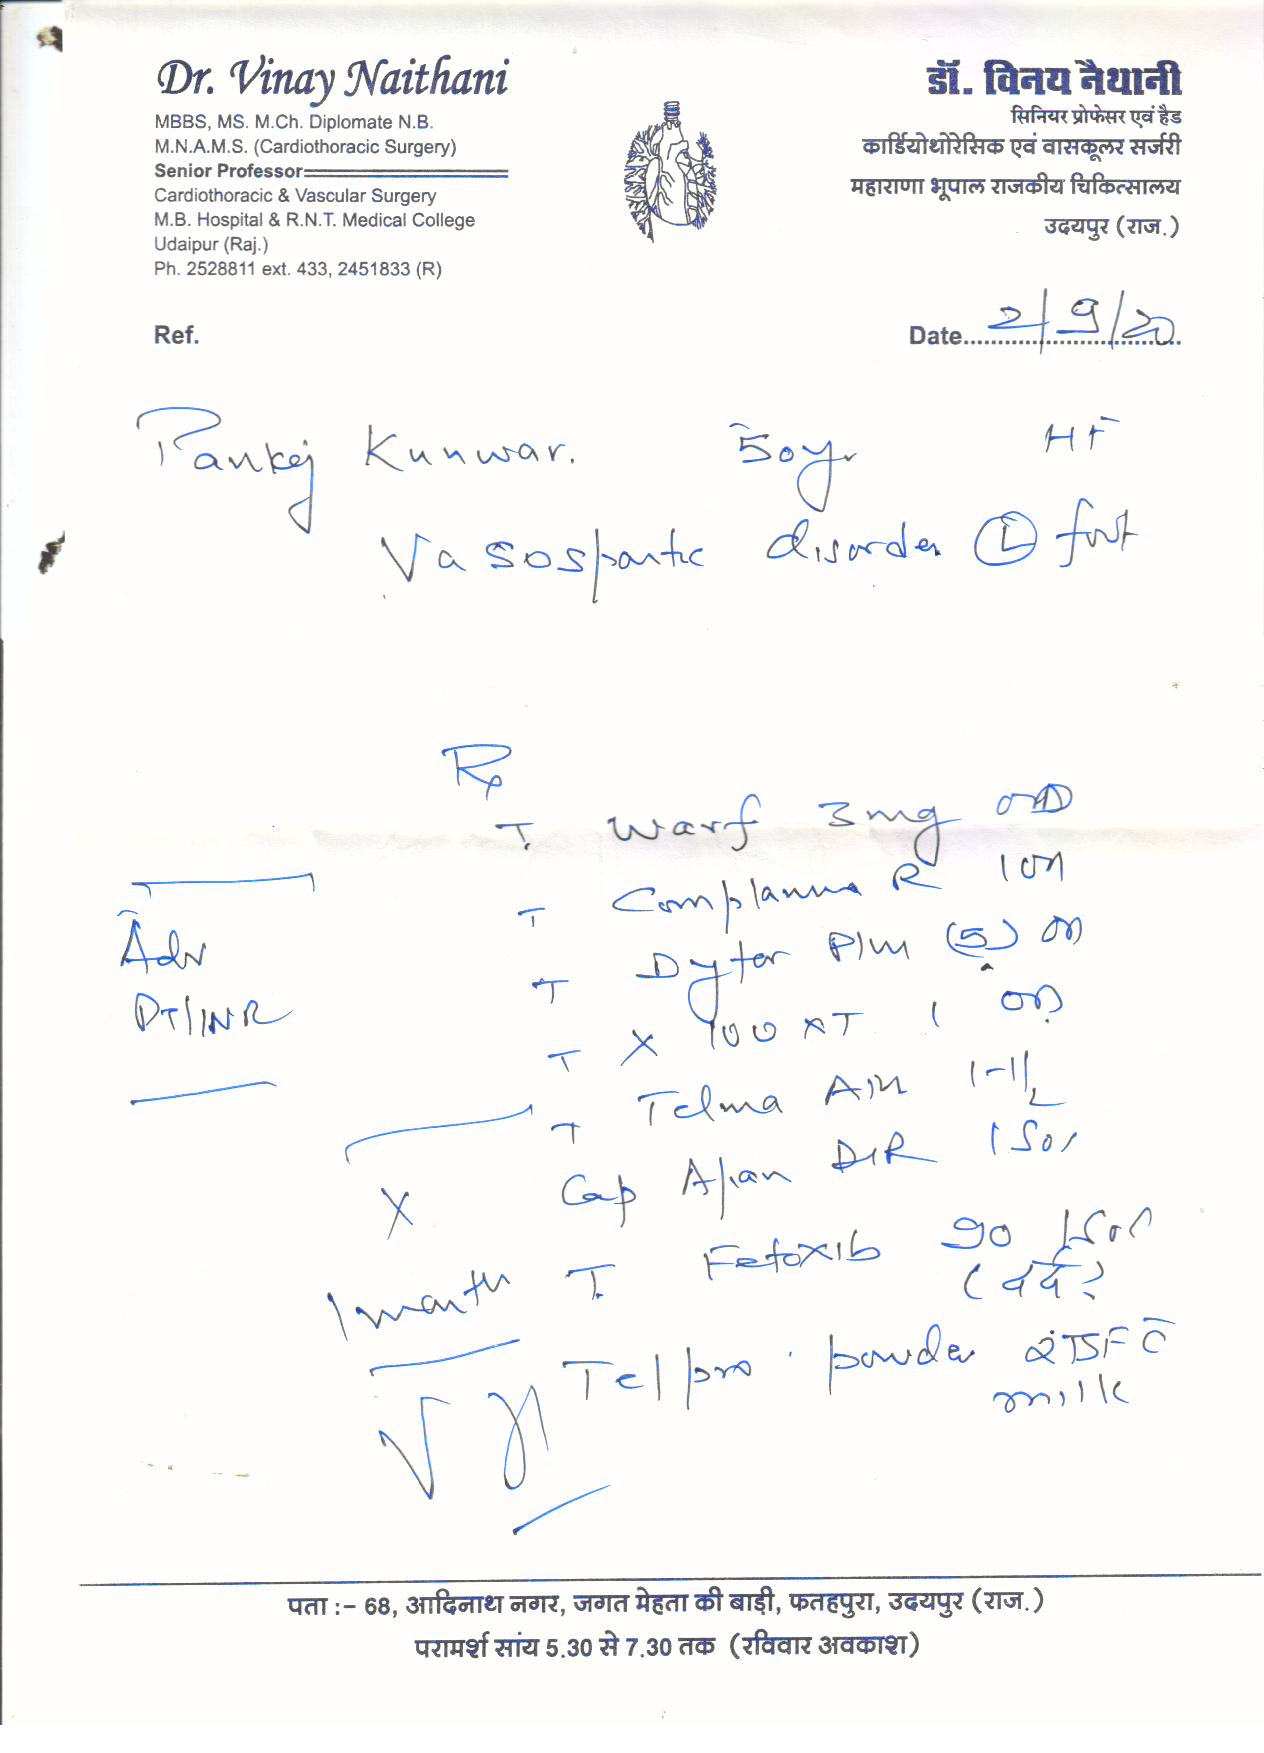 Dr. Vinay Naithani
MBBS, MS. M.Ch. Diplomate N.B.
M.N.A.M.S. (Cardiothoracic Surgery)
Senior Professor
Cardiothoracic & Vascular Surgery
M.B. Hospital & R.N.T. Medical College
Udaipur (Raj.)
Ph. 2528811 ext. 433, 2451833 (R)
डॉ. विनय नैथानी
सिनियर प्रोफेसर एवं हैड
कार्डियोथोरेसिक एवं वासकूलर सर्जरी
महाराणा भूपाल राजकीय चिकित्सालय
उदयपुर (राज.)
Ref.
Date 2/9/20
Pankaj Kunwar. 50yr HF
Vasospastic disorder Ⓛ foot
Rx
T. Warf 3mg OD
T Complamina R 1 OD
T Dytor Plus (5) OD
T X 1 OD
T Telma AM 1-1/2
Cap DSR 1 SOS
T. Etoxib 90 1 SOS
(दर्द)
Telpro powder 2TSF C̄
milk
Adv
PT/INR
X
1 month
पता :- 68, आदिनाथ नगर, जगत मेहता की बाड़ी, फतहपुरा, उदयपुर (राज.)
परामर्श सांय 5.30 से 7.30 तक (रविवार अवकाश)